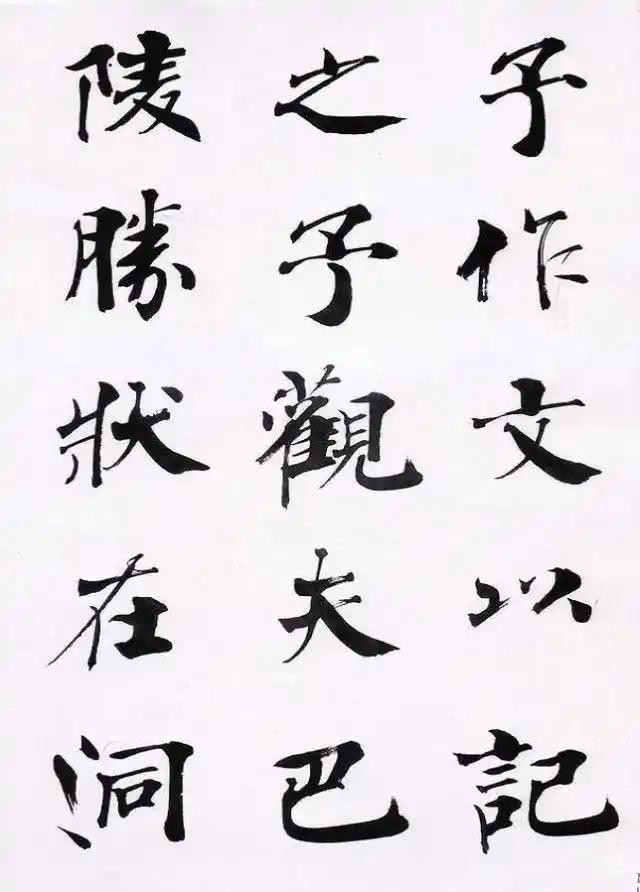 予作文以記
之予觀夫巴
陵勝狀在洞